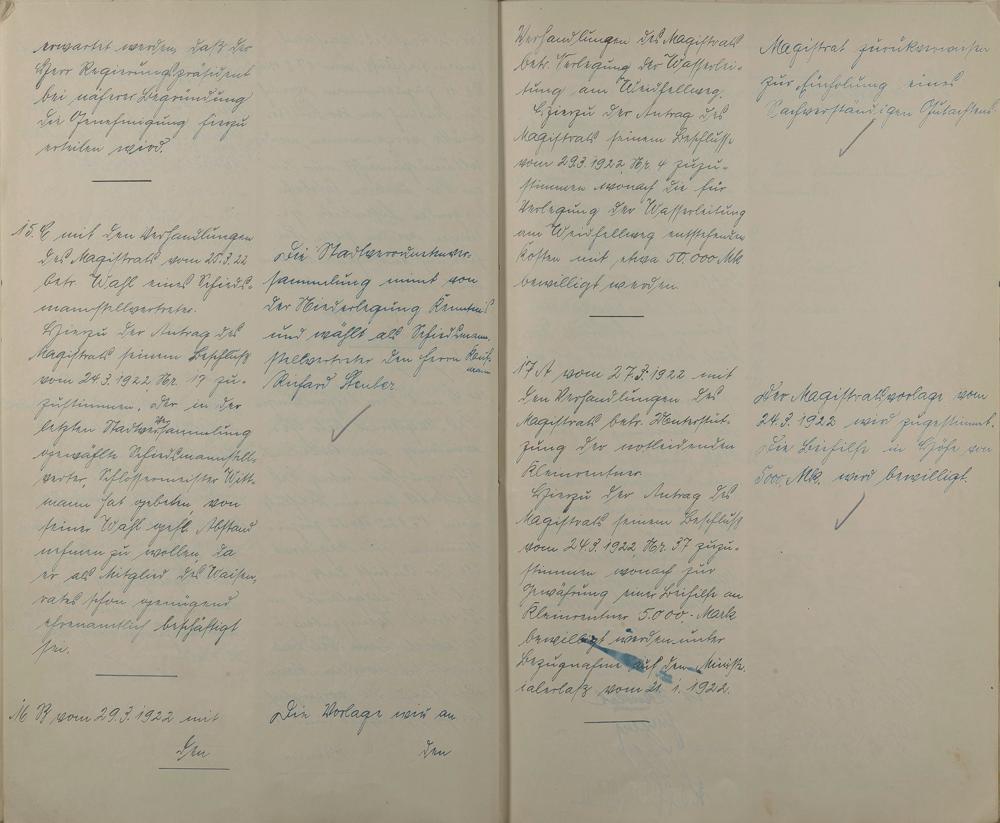 erwartet werden, daß der
Herr Regierungspräsident
bei näherer Begründung
die Genehmigung hierzu
erteilen wird.
15. E mit den Verhandlungen
des Magistrats vom 25.3.22
betr. Wahl eines Schieds-
mannstellvertreter.
Hierzu der Antrag des
Magistrats seinem Beschluß
vom 24.3.1922 Nr. 19 zu-
zustimmen. Der in der
letzten Stadtversammlung
gewählte Schiedsmannstell-
vertreter, Schlossermeister Witt-
mann hat gebeten, von
seiner Wahl gefl. Abstand
nehmen zu wollen, da
er als Mitglied des Waisen-
rates schon genügend
ehrenamtlich beschäftigt
sei.
16 B vom 29.3.1922 mit
den
Die Stadtverordnetenver-
sammlung nimt von
der Niederlegung Kenntnis
und wählt als Schiedsmann-
stellvertreter den Herrn Kauf-
mann
Richard
Die Vorlage wird an
den
Verhandlungen des Magistrats
betr. Verlegung der Wasserlei-
tung am Weidfellweg.
Hierzu der Antrag des
Magistrats seinem Beschlusse
vom 29.3.1922, Nr. 4 zuzu-
stimmen wonach die für
Verlegung der Wasserleitung
am Weidfellweg entstehenden
Kosten mit etwa 50.000 Mk
bewilligt werden.
17 A vom 27.3.1922 mit
den Verhandlungen des
Magistrats betr. Unterstüt-
zung der notleidenden
Kleinrentner.
Hierzu der Antrag des
Magistrats seinem Beschluß
vom 24.3.1922, Nr. 37 zuzu-
stimmen wonach zur
Gewährung einer Beihilfe an
Kleinrentner 5.000,- Mark
bewilligt werden unter
Bezugnahme auf den Ministe-
rialerlaß vom 21.1.1922.
Magistrat zurükverwiesen
zur Einholung eines
Sachverständigen Gutachtens
Der Magistratsvorlage vom
24.3.1922 wird zugestimmt.
Die Beihilfe in Höhe von
5000 Mk. wird bewilligt.